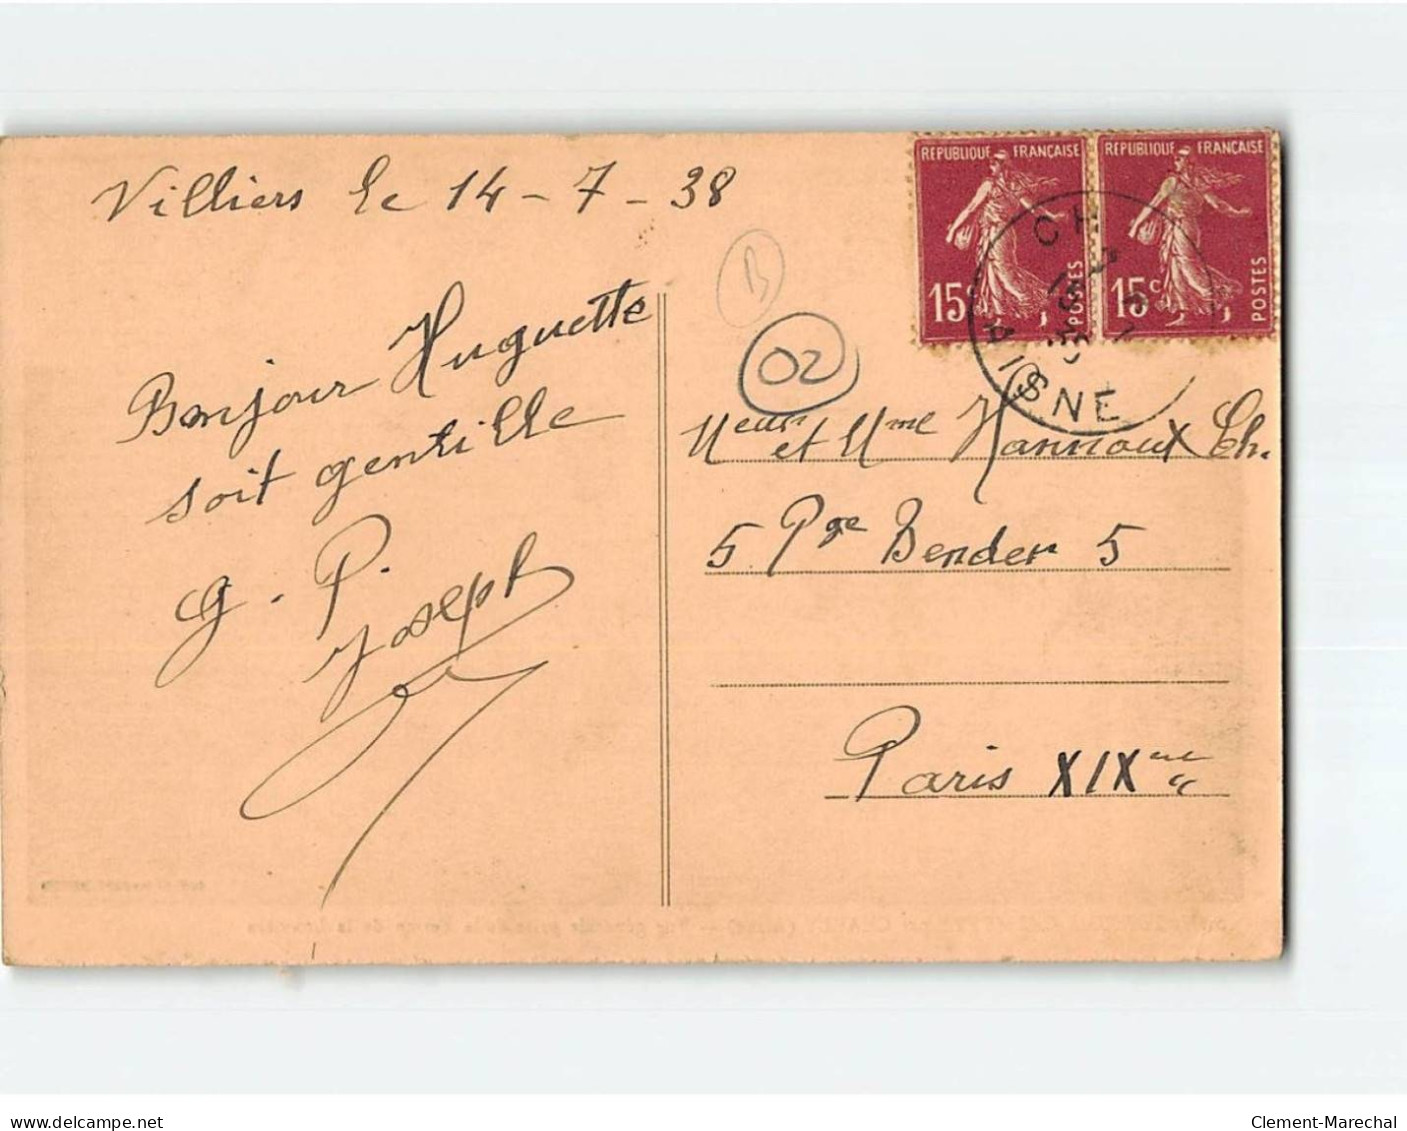 Villiers le 14-7-38
REPUBLIQUE FRANÇAISE
15c
POSTES
REPUBLIQUE FRANÇAISE
15c
POSTES
AISNE
B
02
Bonjour Huguette
soit gentille
G. P.
Joseph
Meur et Mme Hannoux Ch.
5 Pge Bender 5
Paris XIXme
www.delcampe.net
Clement-Marechal